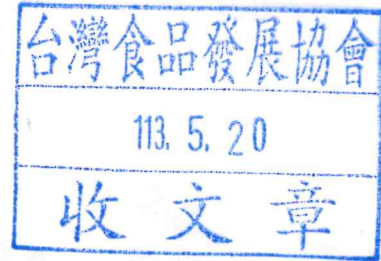 台灣食品發展協會
113. 5. 20
收文章